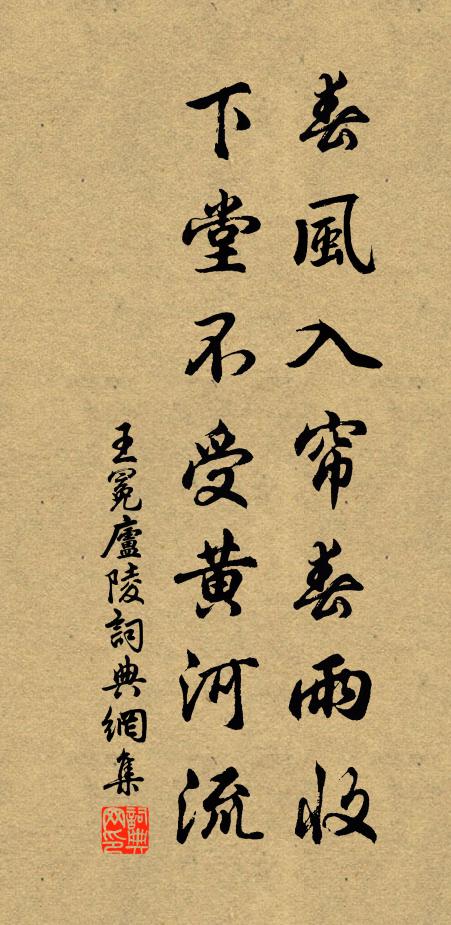 春風入帘春雨收
下堂不受黄河流
王冕廬陵詞典網集
詞典网印